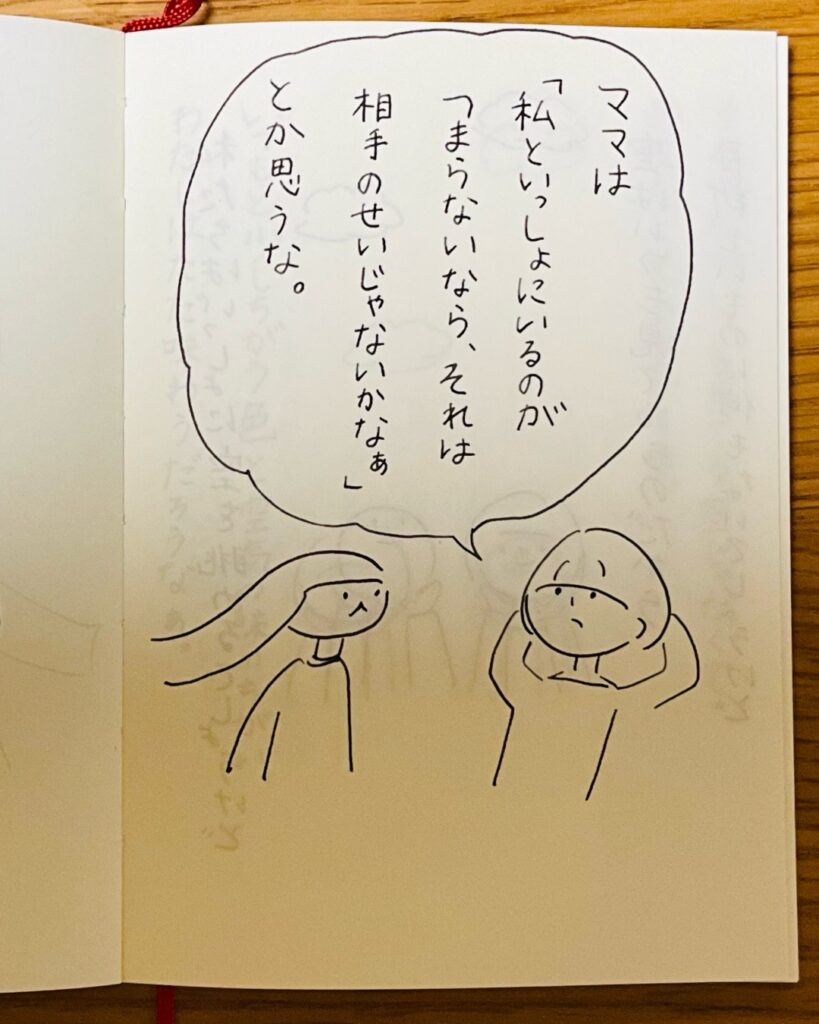 ママは
「私といっしょにいるのが
つまらないなら、それは
相手のせいじゃないかなぁ」
とか思うな。